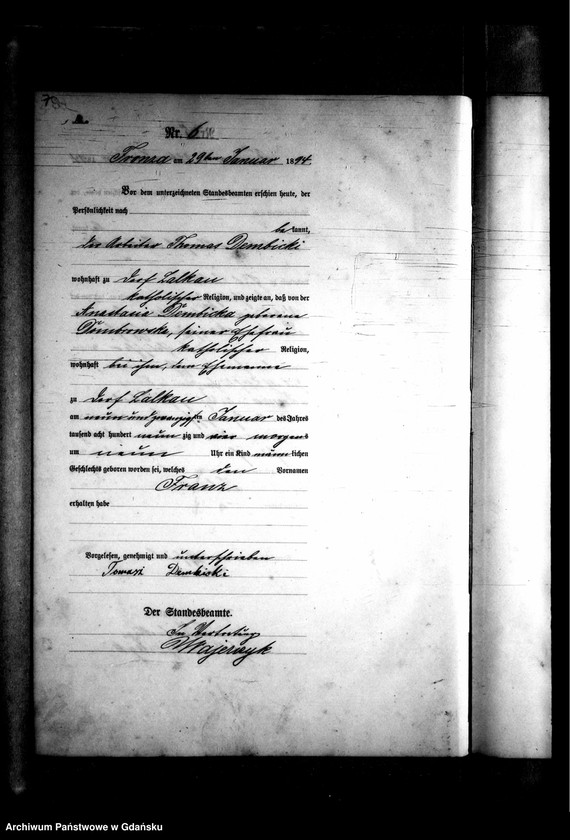 Nr. 6
Tronza am 29ten Januar 1894.
Vor dem unterzeichneten Standesbeamten erschien heute, der
Persönlichkeit nach
bekannt,
der Arbeiter Thomas Dembicki
wohnhaft zu Dorf Lalkau
katholischer Religion, und zeigte an, daß von der
Anastasia Dembicka geborene
Dombrowska, seiner Ehefrau
katholischer Religion,
wohnhaft bei ihm, dem Ehemanne
zu Dorf Lalkau
am neun und zwanzigsten Januar des Jahres
tausend acht hundert neunzig und vier morgens
um neun Uhr ein Kind männlichen
Geschlechts geboren worden sei, welches den Vornamen
Franz
erhalten habe
Vorgelesen, genehmigt und unterschrieben
Tomasz Dembicki
Der Standesbeamte.
In Vertretung
Majewsyk
Archiwum Państwowe w Gdańsku